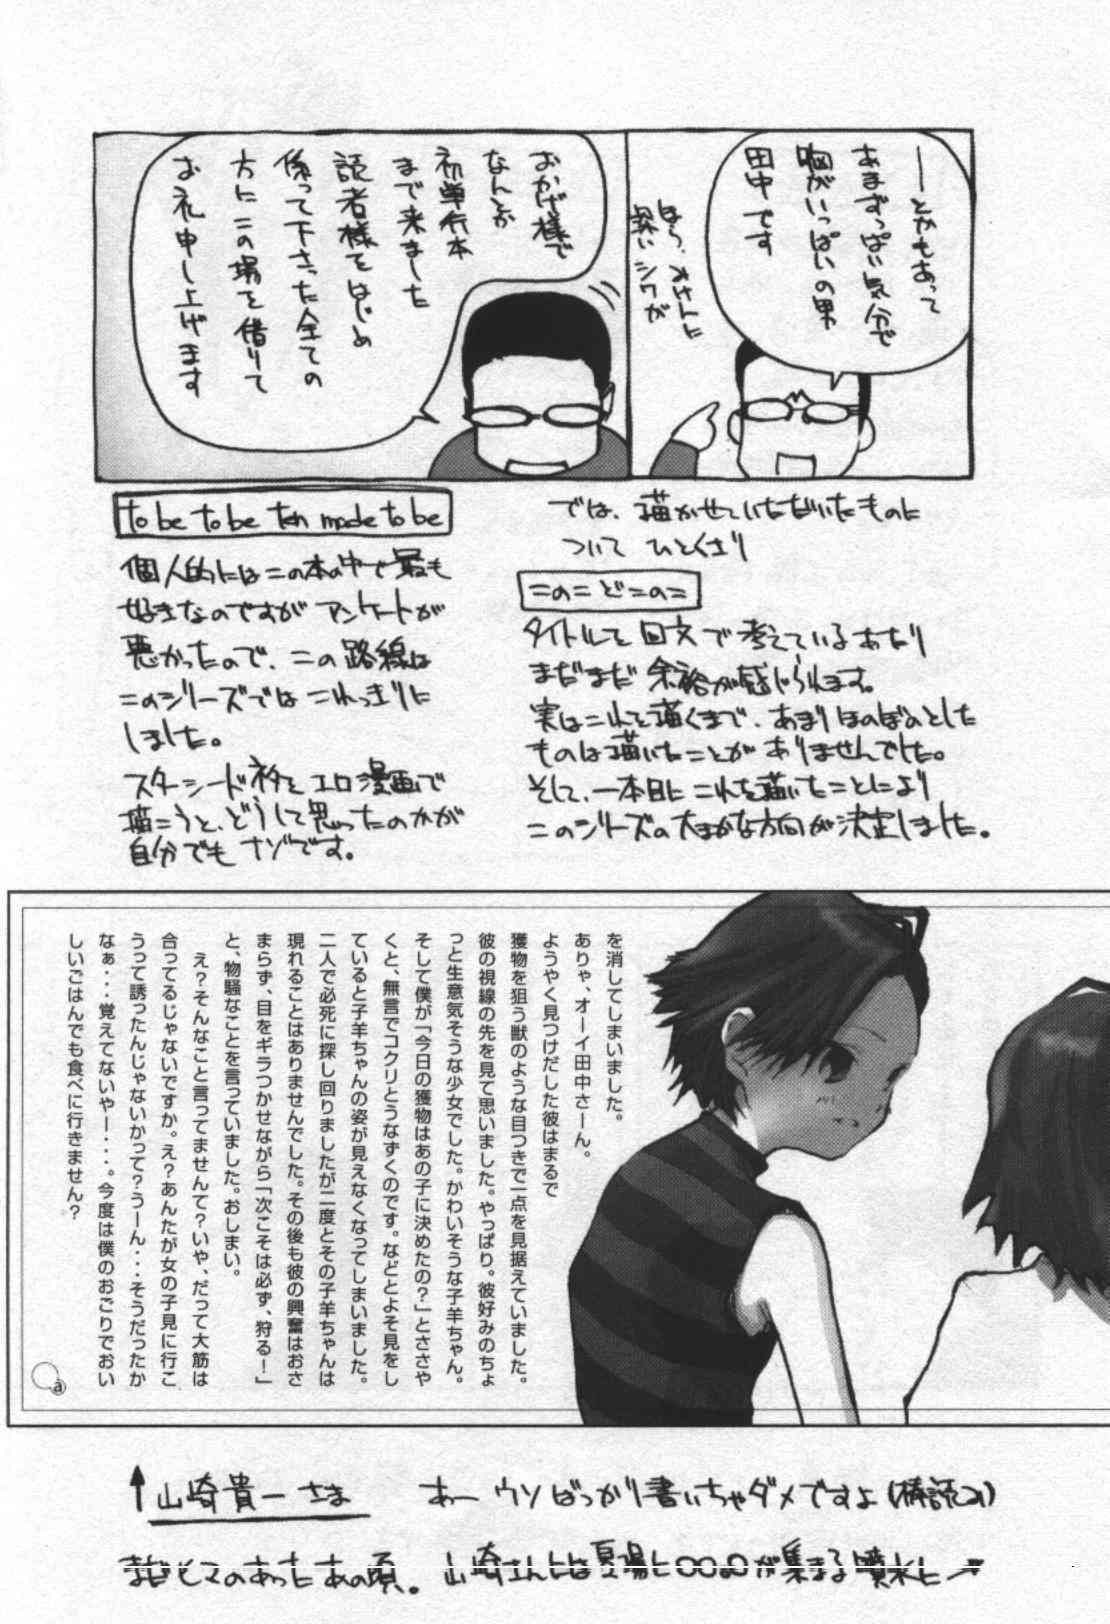 ―とかもあって
あまずっぱい気分で
胸がいっぱいの男
田中です
ほら、オケトに
深いシワが
おかげ様で
なんとか
初単行本
まで来ました
読者様をはじめ
係って下さった全ての
方にこの場を借りて
お礼申し上げます
では、描かせていただいたものに
ついて ひとくさり
このこどこのこ
タイトルを回文で考えているあたり
まだまだ余裕が感じられます。
実はこれを描くまで、あまりほのぼのとした
ものは描いたことがありませんでした。
そして、一本目にこれを描いたことにより
このシリーズの大まかな方向が決定しました。
to be to be ten made to be
個人的にはこの本の中で最も
好きなのですがアンケートが
悪かったので、この路線は
このシリーズではこれっきりに
しました。
スターシードネタをエロ漫画で
描こうと、どうして思ったのかが
自分でもナゾです。
を消してしまいました。
ありゃ、オーイ田中さーん。
ようやく見つけだした彼はまるで
獲物を狙う獣のような目つきで一点を見据えていました。
彼の視線の先を見て思いました。やっぱり。彼好みのちょ
っと生意気そうな少女でした。かわいそうな子羊ちゃん。
そして僕が「今日の獲物はあの子に決めたの?」とささや
くと、無言でコクリとうなずくのです。などとよそ見をし
ていると子羊ちゃんの姿が見えなくなってしまいました。
二人で必死に探し回りましたが二度とその子羊ちゃんは
現れることはありませんでした。その後も彼の興奮はおさ
まらず、目をギラつかせながら「次こそは必ず、狩る!」
と、物騒なことを言っていました。おしまい。
え?そんなこと言ってませんて?いや、だって大筋は
合ってるじゃないですか。え?あんたが女の子見に行こ
うって誘ったんじゃないかって?うーん・・・そうだったか
なぁ・・・覚えてないやー・・・。今度は僕のおごりでおい
しいごはんでも食べに行きません?
a
↑山崎貴一さま あー ウソばっかり書いちゃダメですよ(棒読み)
まだヒマのあったあの頃。山崎さんには夏場に○○○が集まる噴水に→